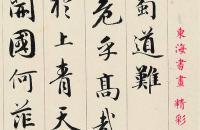 東海書畫精彩
蜀道難
危乎高哉
於上青天
開國何茫